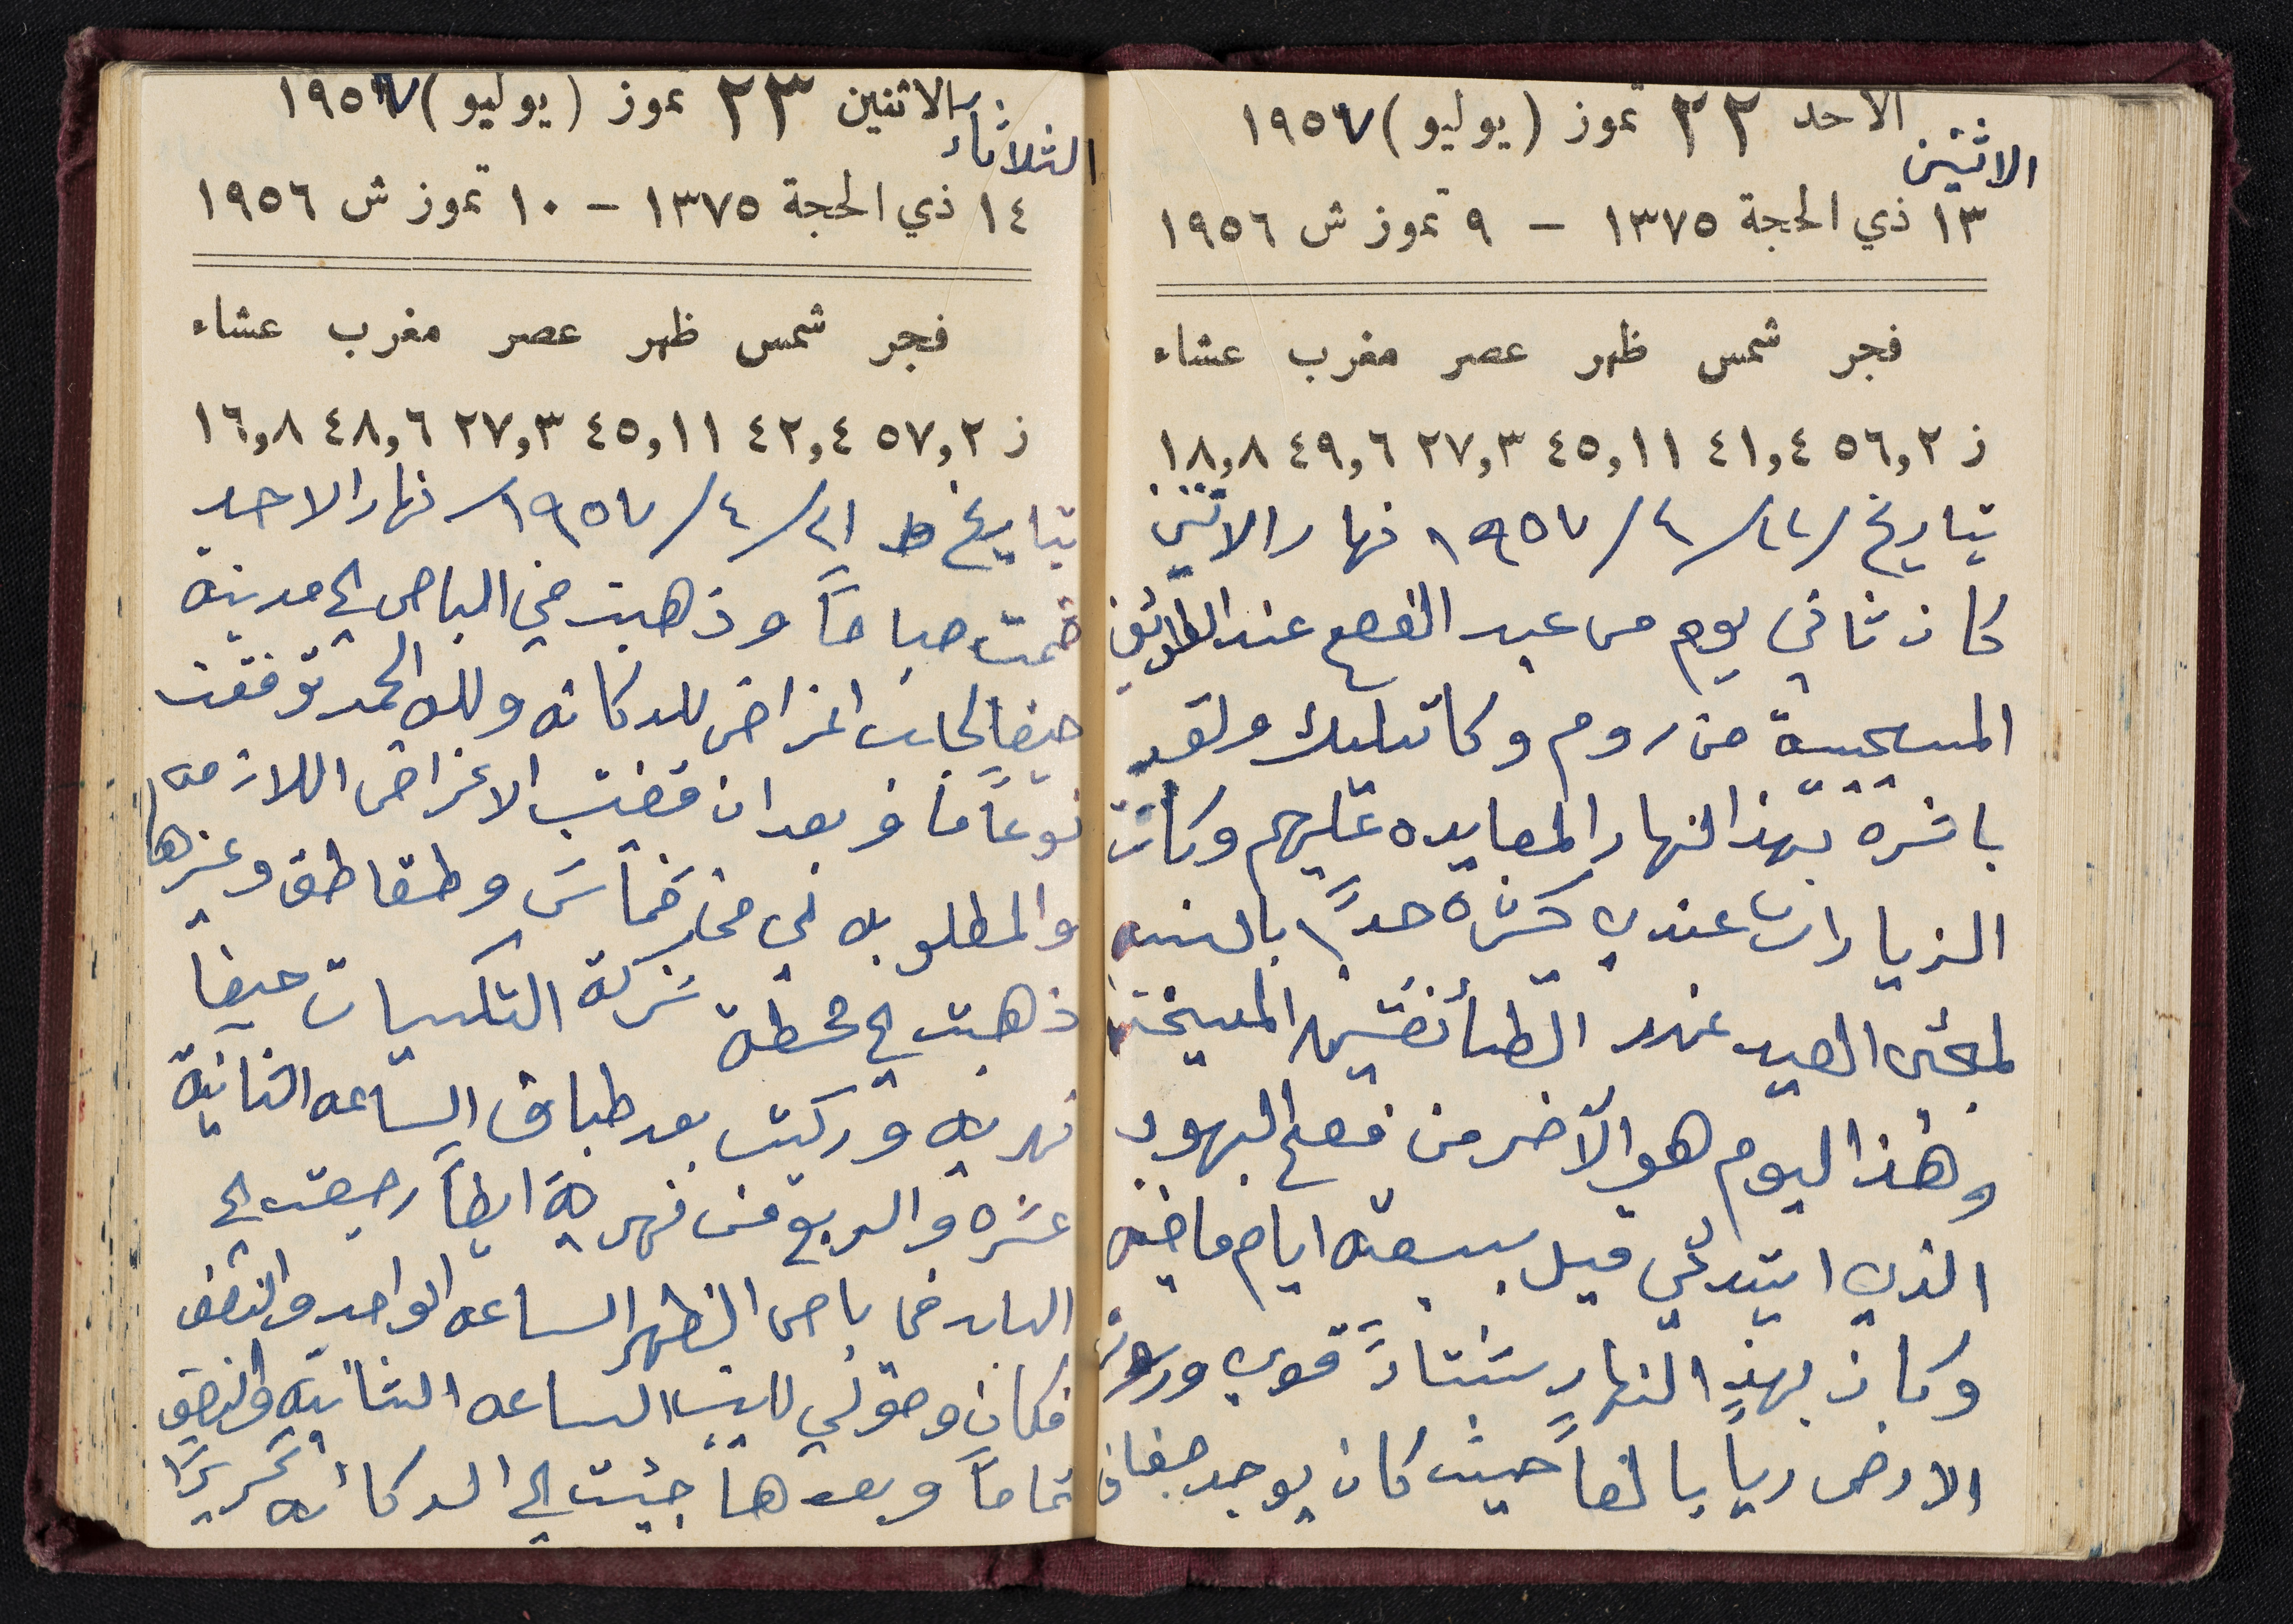 الاحد ٢٢ تموز (يوليو) ١٩٥٧
الاثنين
١٣ ذي الحجة ١٣٧٥ - ٩ تموز ش ١٩٥٦
فجر شمس ظهر عصر مغرب عشاء
ز ٥٦,٢ ٤١,٤ ٤٥,١١ ٢٧,٣ ٤٩,٦ ١٨,٨
بتاريخ /٢٢/٤/١٩٥٧ نهار الاثنين
كان ثاني يوم من عيد الفصح عند الطوائف
المسيحيية من روم وكاتوليك ولقد
باشرة بهذا النهار المعايده عليهم وكانت
الزيارات عندي كثيره جداً بالنسبه
لمجئ العيد عند الطائفتين المسيحيتين
وهذا اليوم هو الآخر من فصح اليهود
الذي ابتدئي قبل سبعة ايام ماضيه
وكان بهذِ النهار شتاءً قوي ورويت
الارض رياً بالغاً حيث كان يوجد جفاف
الاثنين ٢٣ تموز (يوليو) ١٩٥٧
الثلاثاء
١٤ ذي الحجة ١٣٧٥ - ١٠ تموز ش ١٩٥٦
فجر شمس ظهر عصر مغرب عشاء
ز ٥٧,٢ ٤٢,٤ ٤٥,١١ ٢٧,٣ ٤٨,٦ ١٦,٨
بتاريخ ٢١/٤/١٩٥٧ نهار الاحد
قمت صباحاً وذهبت في الباص الى مدينة
حيفا لجلب اغراض للدكانه ولله الحمد توفقت
نوعاً ما وبعد ان قضيت الاغراض اللازمه
والمطلوبه لي من قماش وطقاطق وغيرها
ذهبت الى محطة شركة التكسيات حيفا
نهريه وركبت بعد طباق الساعه الثانية
عشره والربع من نهرية ايظاً رجعت الى
البلد في باص الظهر الساعه الواحد والنصف
فكان وصولي للبيت الساعه الثانيه والنصف
تماماً وبعدها جيئت الى الدكانه تحريرًا